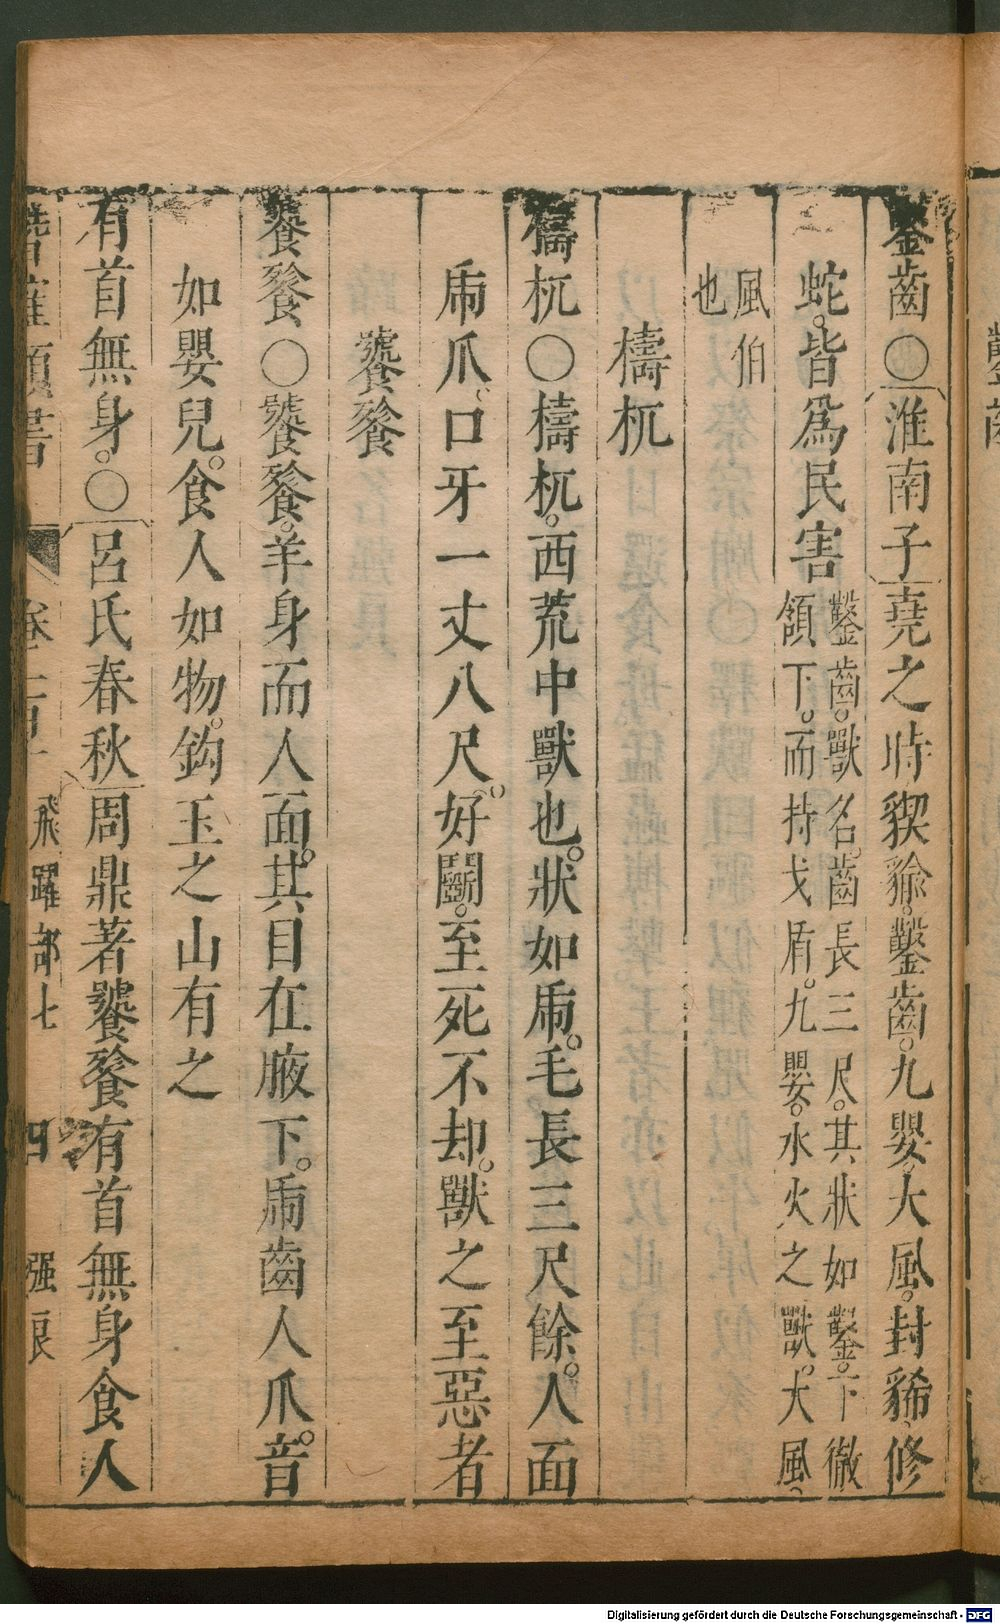 鑿齒○淮南子堯之時猰貐。鑿齒。九嬰。大風。封豨、修
蛇。皆為民害
鑿齒。獸名。齒長三尺。其狀如鑿。下徹
頷下。而持戈盾。九嬰。水火之獸。大風、
風伯
也
檮杌
檮杌○檮杌。西荒中獸也。狀如乕。毛長三尺餘。人面
乕爪、口牙一丈八尺。好鬭。至死不却。獸之至惡者
饕餮
饕餮○饕餮。羊身而人面。其目在腋下。乕齒人爪。音
如嬰兒。食人如物。鈎玉之山有之
有首無身。○呂氏春秋周鼎著饕餮有首無身食人
類書
飛躍部七
四
Digitalisierung gefördert durch die Deutsche Forschungsgemeinschaft - DFG